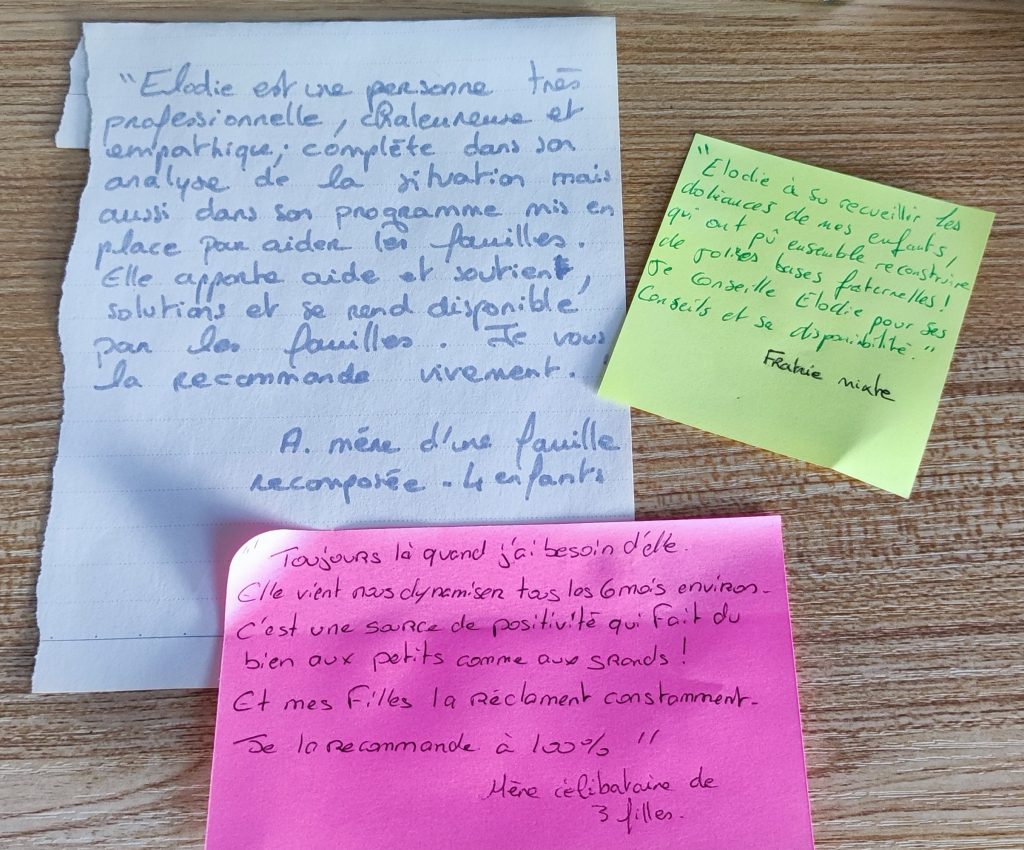 "Elodie est une personne très
professionnelle, chaleureuse et
empathique; complète dans son
analyse de la situation mais
aussi dans son programme mis en
place pour aider les familles.
Elle apporte aide et soutient,
solutions et se rend disponible
pour les familles. Je vous
la recommande vivement."
A. mère d'une famille
recomposée - 4 enfants
"Elodie à su recueillir les
doléances de mes enfants,
qui ont pû ensemble reconstruire
de solides bases fraternelles!
Je conseille Elodie pour ses
conseils et sa disponibilité."
Fratrie mixte
"Toujours là quand j'ai besoin d'elle.
Elle vient nous dynamiser tous les 6 mois environ.
C'est une source de positivité qui fait du
bien aux petits comme aux grands!
Et mes filles la réclament constamment.
Je la recommande à 100%"
Mère célibataire de
3 filles.